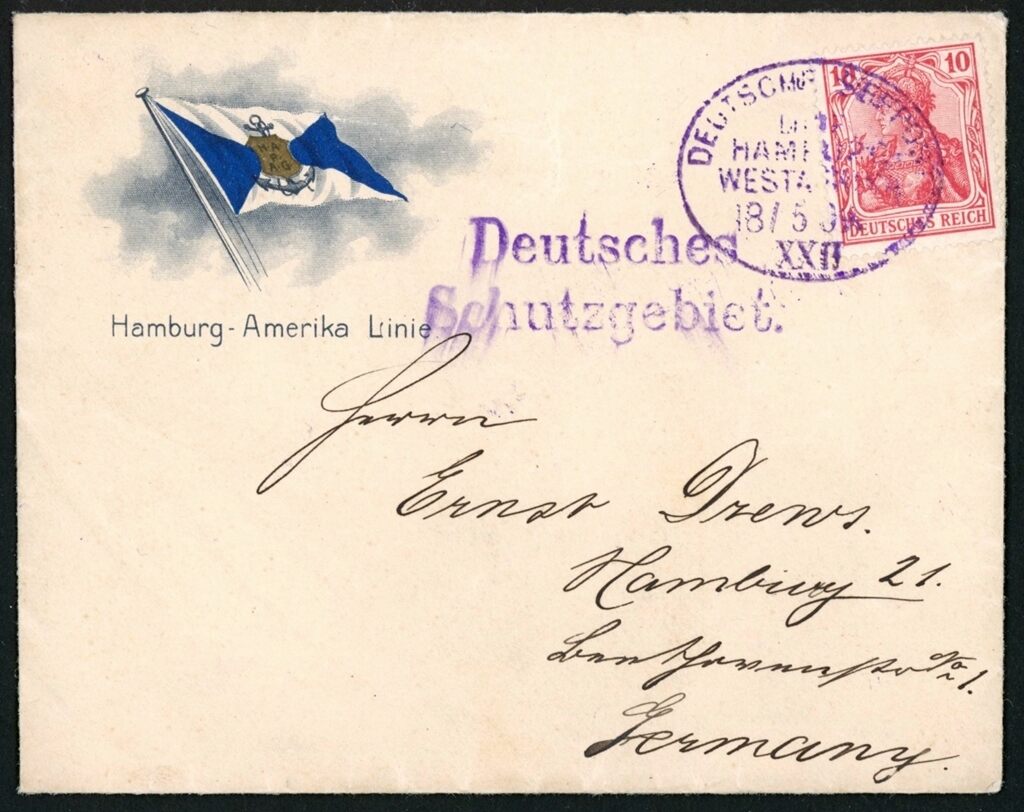 HAPAG
Hamburg-Amerika Linie
Deutsches
Schutzgebiet.
DEUTSCHE SEEPOST
HAMBURG
WESTAFRIKA
18/5
XXII
10 10
DEUTSCHES REICH
Herrn
Ernst Drews.
Hamburg 21.
Beethovenstr No 1.
Germany.